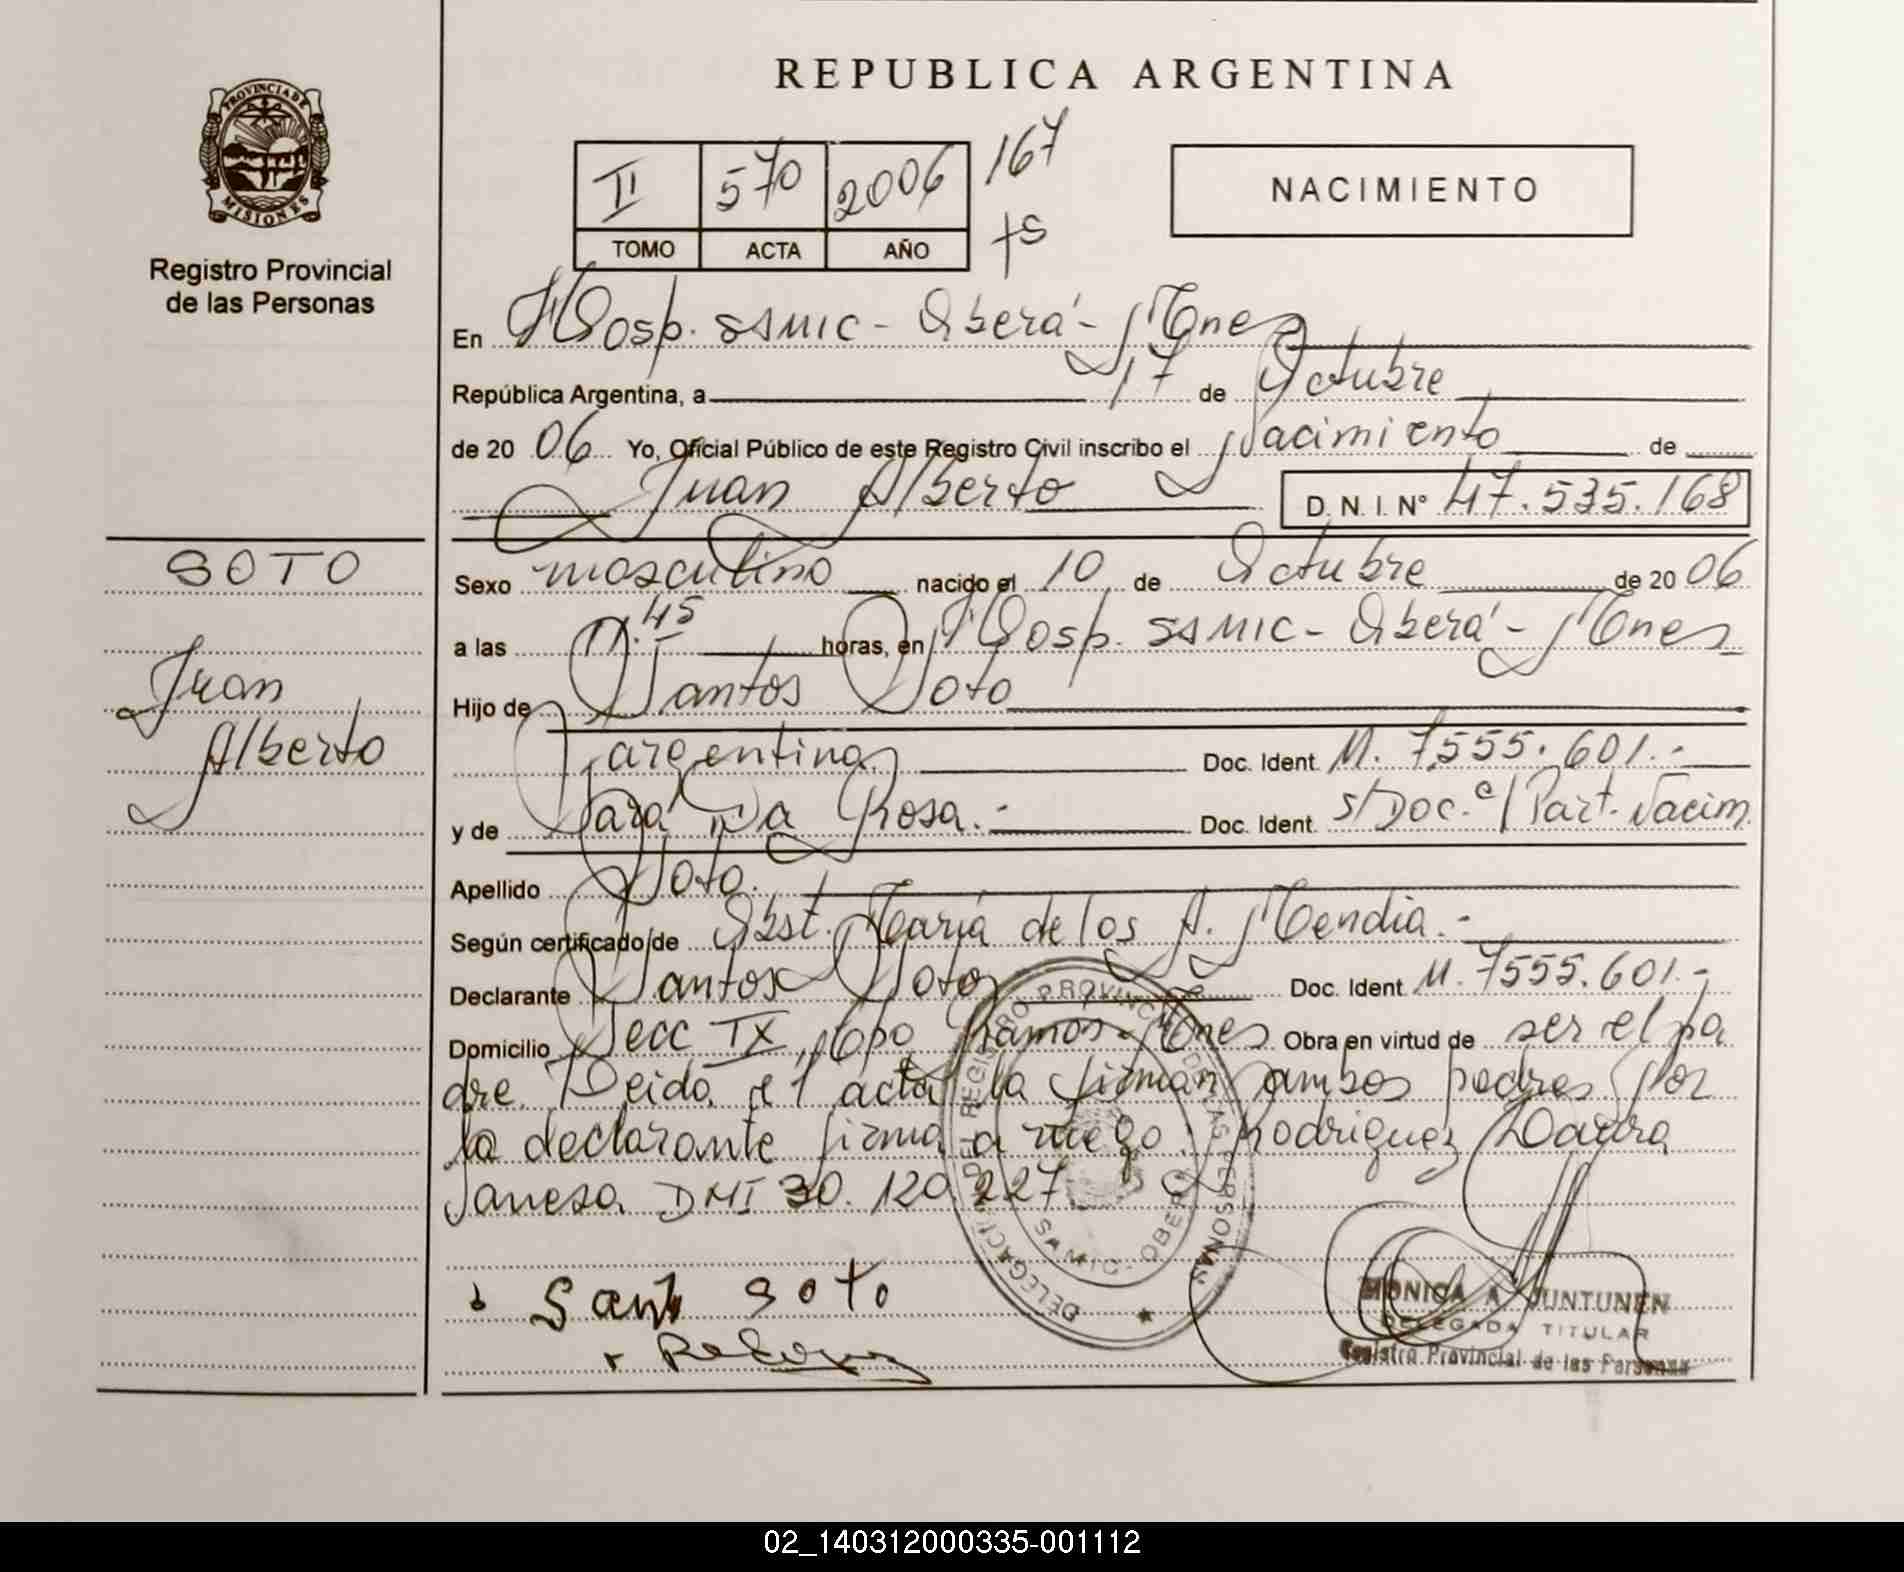 REPUBLICA ARGENTINA
PROVINCIA DE
MISIONES
Registro Provincial
de las Personas
II 570 2006 167
TOMO ACTA AÑO
NACIMIENTO
En Hosp. SAMIC - Oberá - Mnes
República Argentina, a 17 de Octubre
de 20 06 Yo, Oficial Público de este Registro Civil inscribo el Nacimiento de
Juan Alberto D. N. I. N° 47.535.168
SOTO
Juan
Alberto
Sexo masculino nacido el 10 de Octubre de 20 06
a las 11.45 horas, en Hosp. SAMIC - Oberá - Mnes
Hijo de Santos Soto
argentino Doc. Ident. M. 7.555.601.-
y de Sara Da Rosa.- Doc. Ident. s/Doc. c/ Part. Nacim.
Apellido Soto.
Según certificado de Obst. María de los A. Mendia.-
Declarante Santos Soto Doc. Ident. M. 7555.601.-
Domicilio Secc IX, Cpo Ramos - Mnes Obra en virtud de ser el pa
dre. Leida el acta la firman ambos padres por
la declarante firma a ruego: Rodriguez
Vanesa DNI 30.120.227
DELEGACION DEL REGISTRO PROVINCIAL DE LAS PERSONAS
SAMIC - OBERA
Soto
MONICA A JUNTUNEN
DELEGADA TITULAR
Registro Provincial de las Personas
02_140312000335-001112